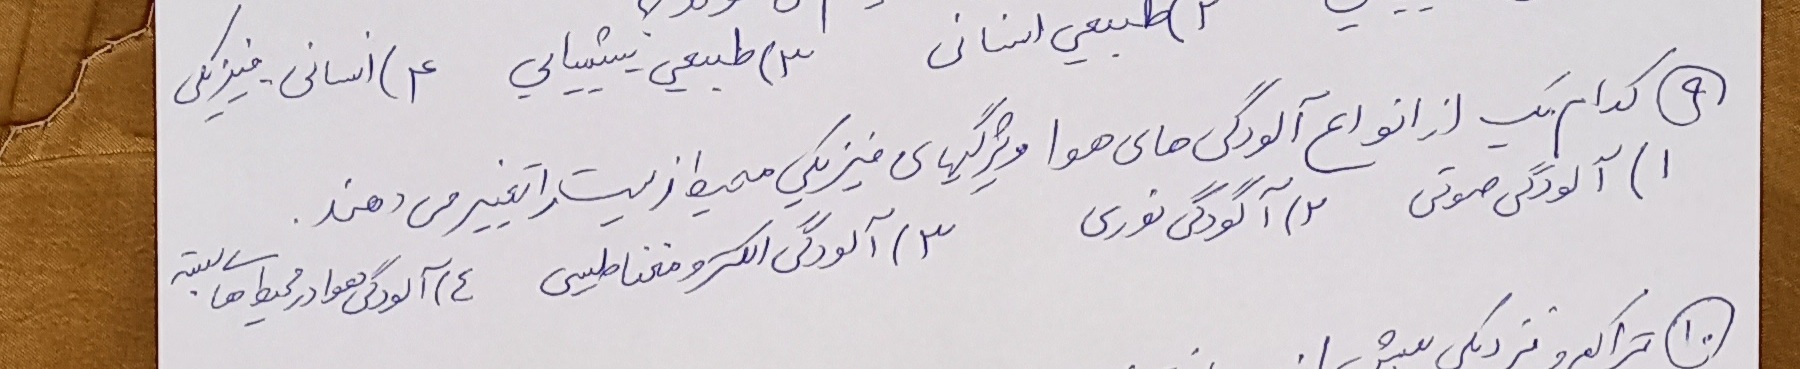 ۲) طبیعی انسانی ۳) طبیعی شیمیایی ۴) انسانی - فیزیکی
۹) کدام یک از انواع آلودگی های هوا ویژگیهای فیزیکی محیط زیست را تغییر می دهند.
۱) آلودگی صوتی ۲) آگودگی نوری ۳) آلودگی الکترومغناطیسی ٤) آلودگی هوا در محیط های بسته
۱۰) تراکم و فشردگی بیش